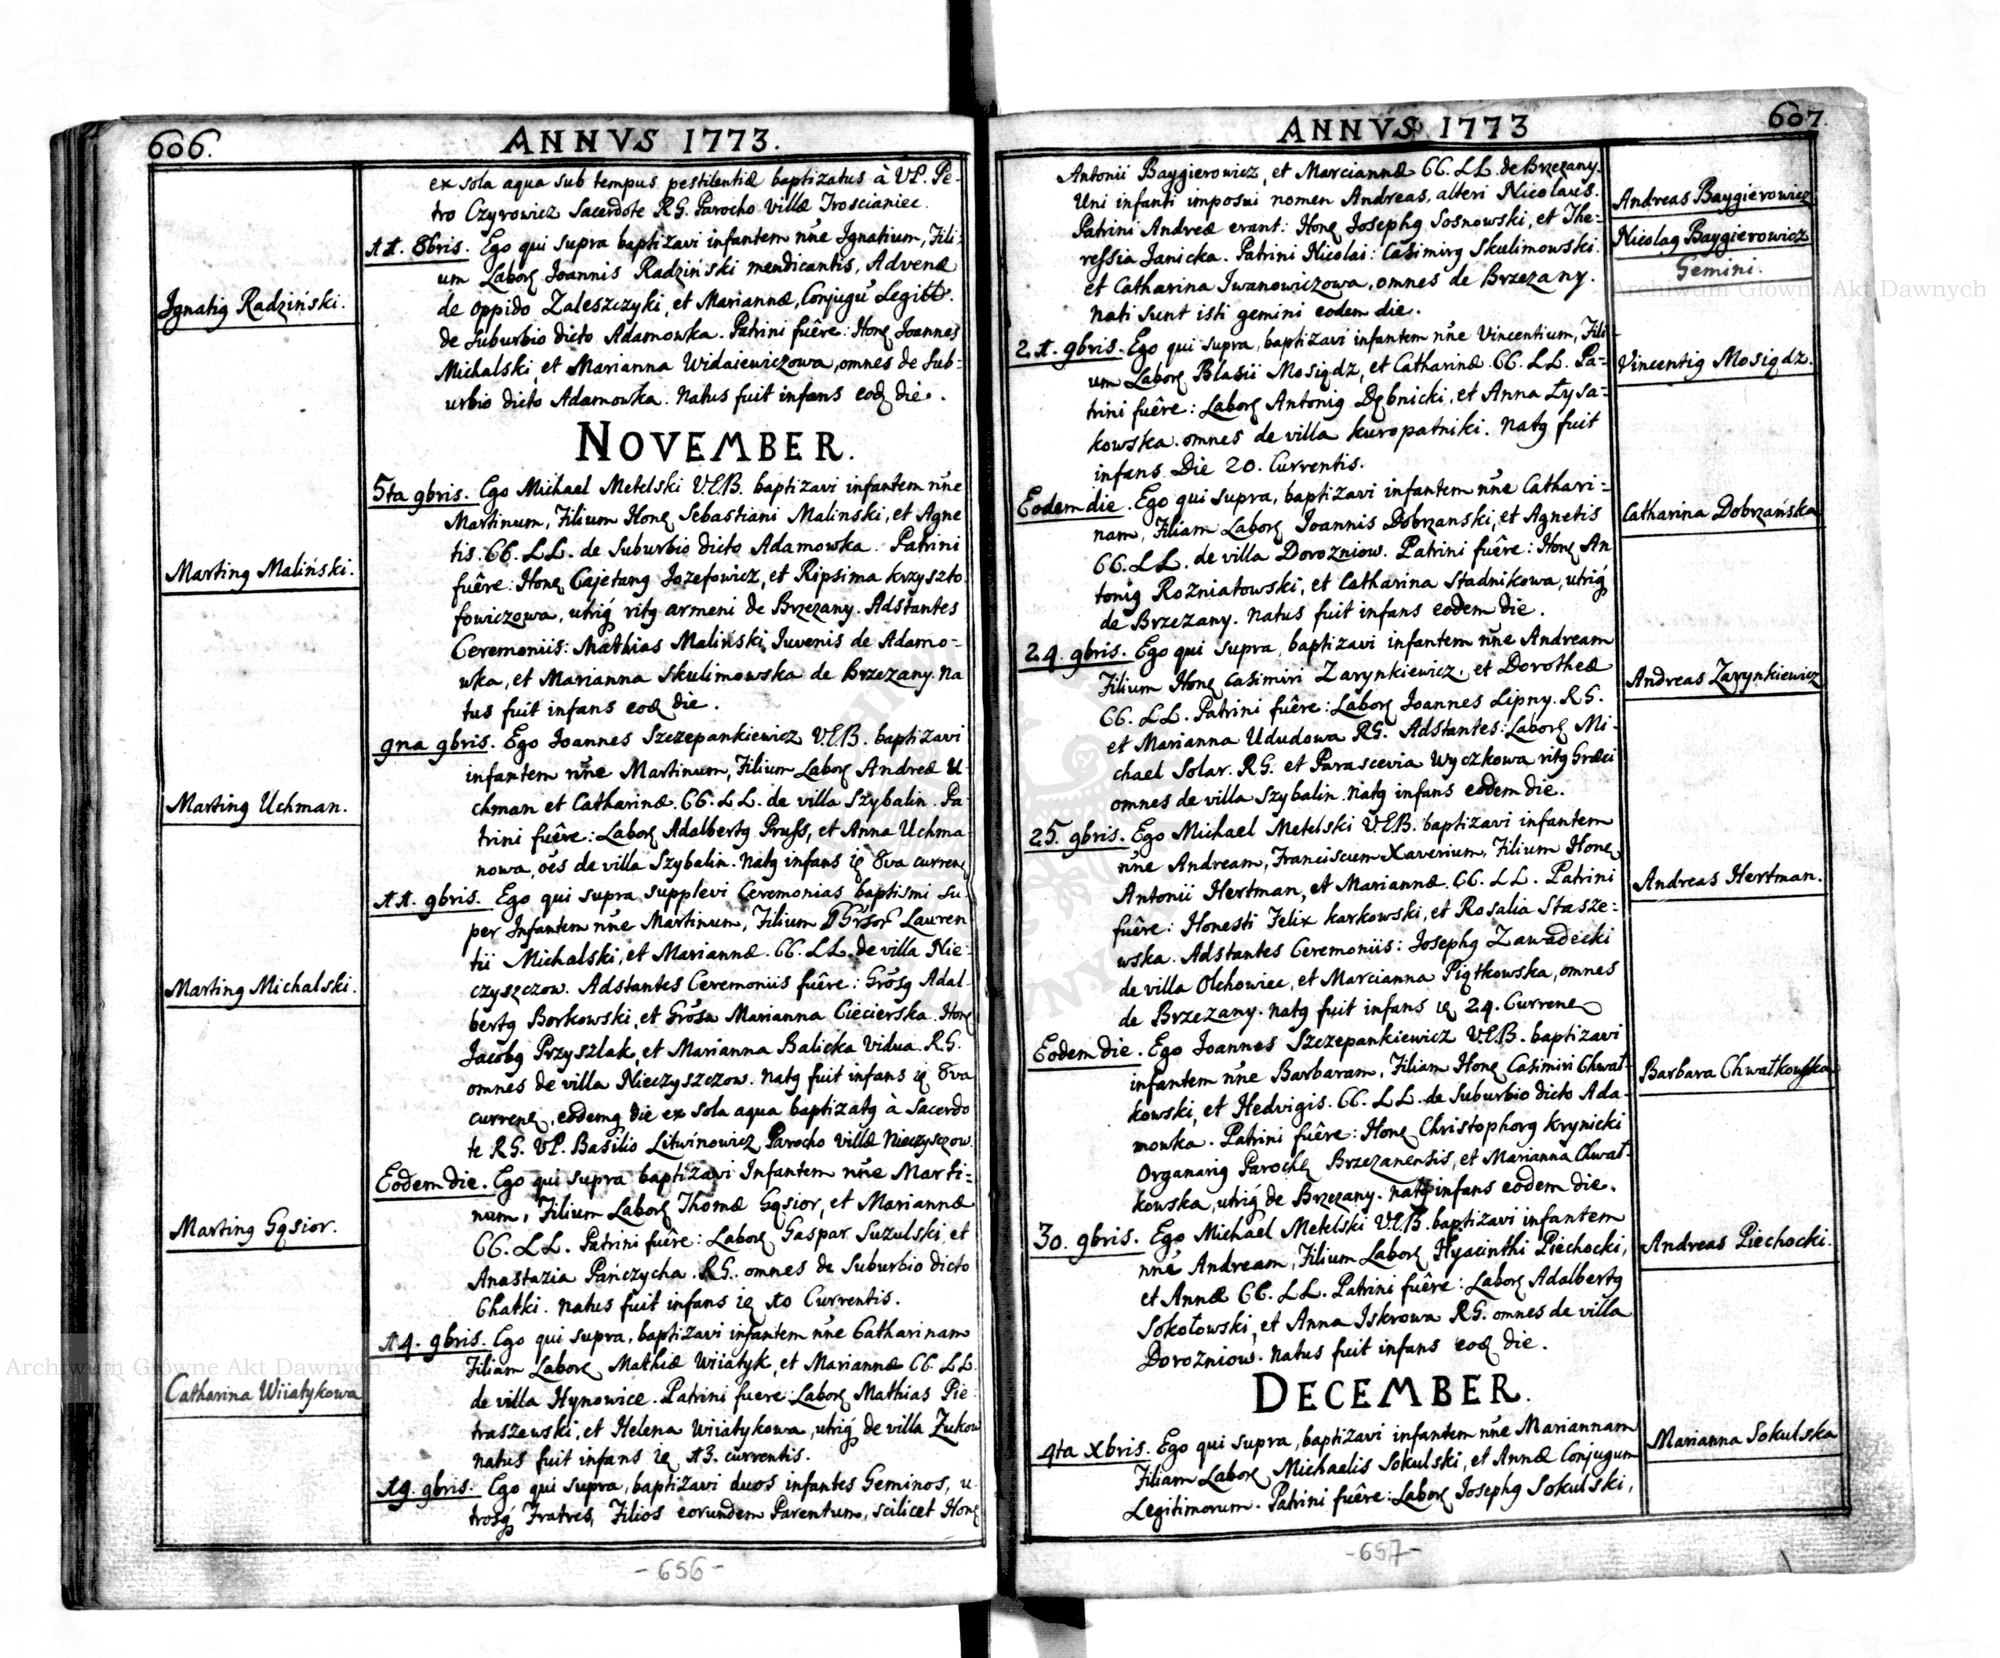 606.
ANNVS 1773.
ex sola aqua sub tempus pestilentiæ baptizatus à VP. Pe-
tro Czyrowicz Sacerdote RG. Parocho villæ Troscianiec.
11. 8bris. Ego qui supra baptizavi infantem nñe Ignatium, Fili-
um Labor Joannis Radziński mendicantis, Advenæ
de oppido Zaleszczyki, et Mariannæ, Conjugū Legitt.
de suburbio dicto Adamowka. Patrini fuêre: Hon Joannes
Michalski, et Marianna Widaiewiczowa, omnes de sub-
urbio dicto Adamowka. Natus fuit infans eod die.
Ignatig Radziński.
NOVEMBER.
5ta 9bris. Ego Michael Metelski V.E.B. baptizavi infantem nñe
Martinum, Filium Hon Sebastiani Malinski, et Agne
tis. CC. LL. de suburbio dicto Adamowka. Patrini
fuêre: Hon Cajetang Jozefowicz, et Ripsima Krzyszto
fowiczowa, utrig ritg armeni de Brzezany. Adstantes
Ceremoniis: Mathias Malinski Iuvenis de Adamo-
wka, et Marianna Skulimowska de Brzezany. Na
tus fuit infans eod die.
Marting Maliński.
9na 9bris. Ego Joannes Szczepankiewicz V.E.B. baptizavi
infantem nñe Martinum, Filium Labor Andreæ U-
chman et Catharinæ. CC. LL. de villa Szybalin. Pa-
trini fuêre: Labor Adalbertg Pruss, et Anna Uchma-
nowa, oēs de villa Szybalin. Natg infans ie 8va curren
Marting Uchman.
11. 9bris. Ego qui supra supplevi Ceremonias baptismi su-
per Infantem nñe Martinum, Filium Lauren
tii Michalski, et Mariannæ. CC. LL. de villa Nie-
czyszczow. Adstantes Ceremoniis fuêre: Grosg Adal-
bertg Borkowski, et Grosa Marianna Ciecierska. Hon
Jacobg Przyszlak, et Marianna Balicka Vidua. R.G.
omnes de villa Nieczyszczow. Natg fuit infans ie 8va
curren, eodemg die ex sola aqua baptizatg à Sacerdo
te R.G. VP. Basilio Litwinowicz Parocho villæ Nieczysczow.
Marting Michalski.
Eodem die. Ego qui supra baptizavi Infantem nñe Marti-
num, Filium Labor Thomæ Gąsior, et Mariannæ
CC. LL. Patrini fuêre: Labor Gaspar Suzulski, et
Anastazia Pańczycha. RG. omnes de Suburbio dicto
Chatki. Natus fuit infans ie 10 Currentis.
Marting Gąsior.
14. 9bris. Ego qui supra, baptizavi infantem nñe Catharinam
Filiam Labor Mathiæ Wiiatyk, et Mariannæ CC. LL.
de villa Hynowice. Patrini fuere: Labor Mathias Pie-
traszewski, et Helena Wiiatykowa, utrig de villa Zukow
natus fuit infans ie 13. currentis.
Catharina Wiiatykowa
19. 9bris. Ego qui supra, baptizavi duos infantes Geminos, u-
trosg Fratres, Filios eorundem Parentum, scilicet Hon
-656-
607.
ANNVS 1773
Antonii Baygierowicz, et Marciannæ CC. LL. de Brzezany.
Uni infanti imposui nomen Andreas, alteri Nicolaus.
Patrini Andreæ erant: Hon Josephg Sosnowski, et The-
ressia Janicka. Patrini Nicolai: Casimirg Skulimowski.
et Catharina Iwanowiczowa, omnes de Brzezany.
Nati sunt isti gemini eodem die.
Andreas Baygierowicz
Nicolag Baygierowicz
Gemini.
21. 9bris. Ego qui supra, baptizavi infantem nñe Vincentium, Fili-
um Labor Blasii Mosiądz, et Catharinæ CC. LL. Pa-
trini fuêre: Labor Antonig Dębnicki, et Anna Łysa-
kowska. omnes de villa Kuropatniki. Natg fuit
infans Die 20. Currentis.
Vincentig Mosiądz.
Eodem die. Ego qui supra, baptizavi infantem nñe Cathari-
nam, Filiam Labor Joannis Dobrzanski, et Agnetis
CC. LL. de villa Dorozniow. Patrini fuêre: Hon An
tonig Rozniatowski, et Catharina Stadnikowa, utrig
de Brzezany. Natus fuit infans eodem die.
Catharina Dobrzańska
24. 9bris. Ego qui supra, baptizavi infantem nñe Andream
Filium Hon Casimiri Zarynkiewicz, et Dorotheæ
CC. LL. Patrini fuêre: Labor Joannes Lipny. R.G.
et Marianna Ududowa RG. Adstantes: Labor Mi-
chael Solar. RG. et Parascevia Wyczkowa ritg Græci
omnes de villa Szybalin. Natg infans eodem die.
Andreas Zarynkiewicz
25. 9bris. Ego Michael Metelski V.E.B. baptizavi infantem
nñe Andream, Franciscum Xaverium, Filium Hon
Antonii Hertman, et Mariannæ. CC. LL. Patrini
fuêre: Honesti Felix Karkowski, et Rosalia Stasze-
wska. Adstantes Ceremoniis: Josephg Zawadecki
de villa Olchowiec, et Marcianna Piątkowska, omnes
de Brzezany. Natg fuit infans ie 24. Curren
Andreas Hertman.
Eodem die. Ego Joannes Szczepankiewicz V.E.B. baptizavi
infantem nñe Barbaram, Filiam Hon Casimiri Chwał-
kowski, et Hedvigis. CC. LL. de Suburbio dicto Ada-
mowka. Patrini fuêre: Hon Christophorg Krynicki
Organarig Paroch Brzezanensis, et Marianna Chwał-
kowska, utrig de Brzezany. Natg infans eodem die.
Barbara Chwałkowska
30. 9bris. Ego Michael Metelski V.E.B. baptizavi infantem
nñe Andream, Filium Labor Hyacinthi Piechocki,
et Annæ CC. LL. Patrini fuêre: Labor Adalbertg
Sokołowski, et Anna Iskrowa RG. omnes de villa
Dorozniow. Natus fuit infans eod die.
Andreas Piechocki.
DECEMBER.
4ta Xbris. Ego qui supra, baptizavi infantem nñe Mariannam
Filiam Labor Michaelis Sokulski, et Annæ Conjugum
Legitimorum. Patrini fuêre: Labor Josephg Sokulski,
Marianna Sokulska
-657-
Archiwum Główne Akt Dawnych
Archiwum Główne Akt Dawnych